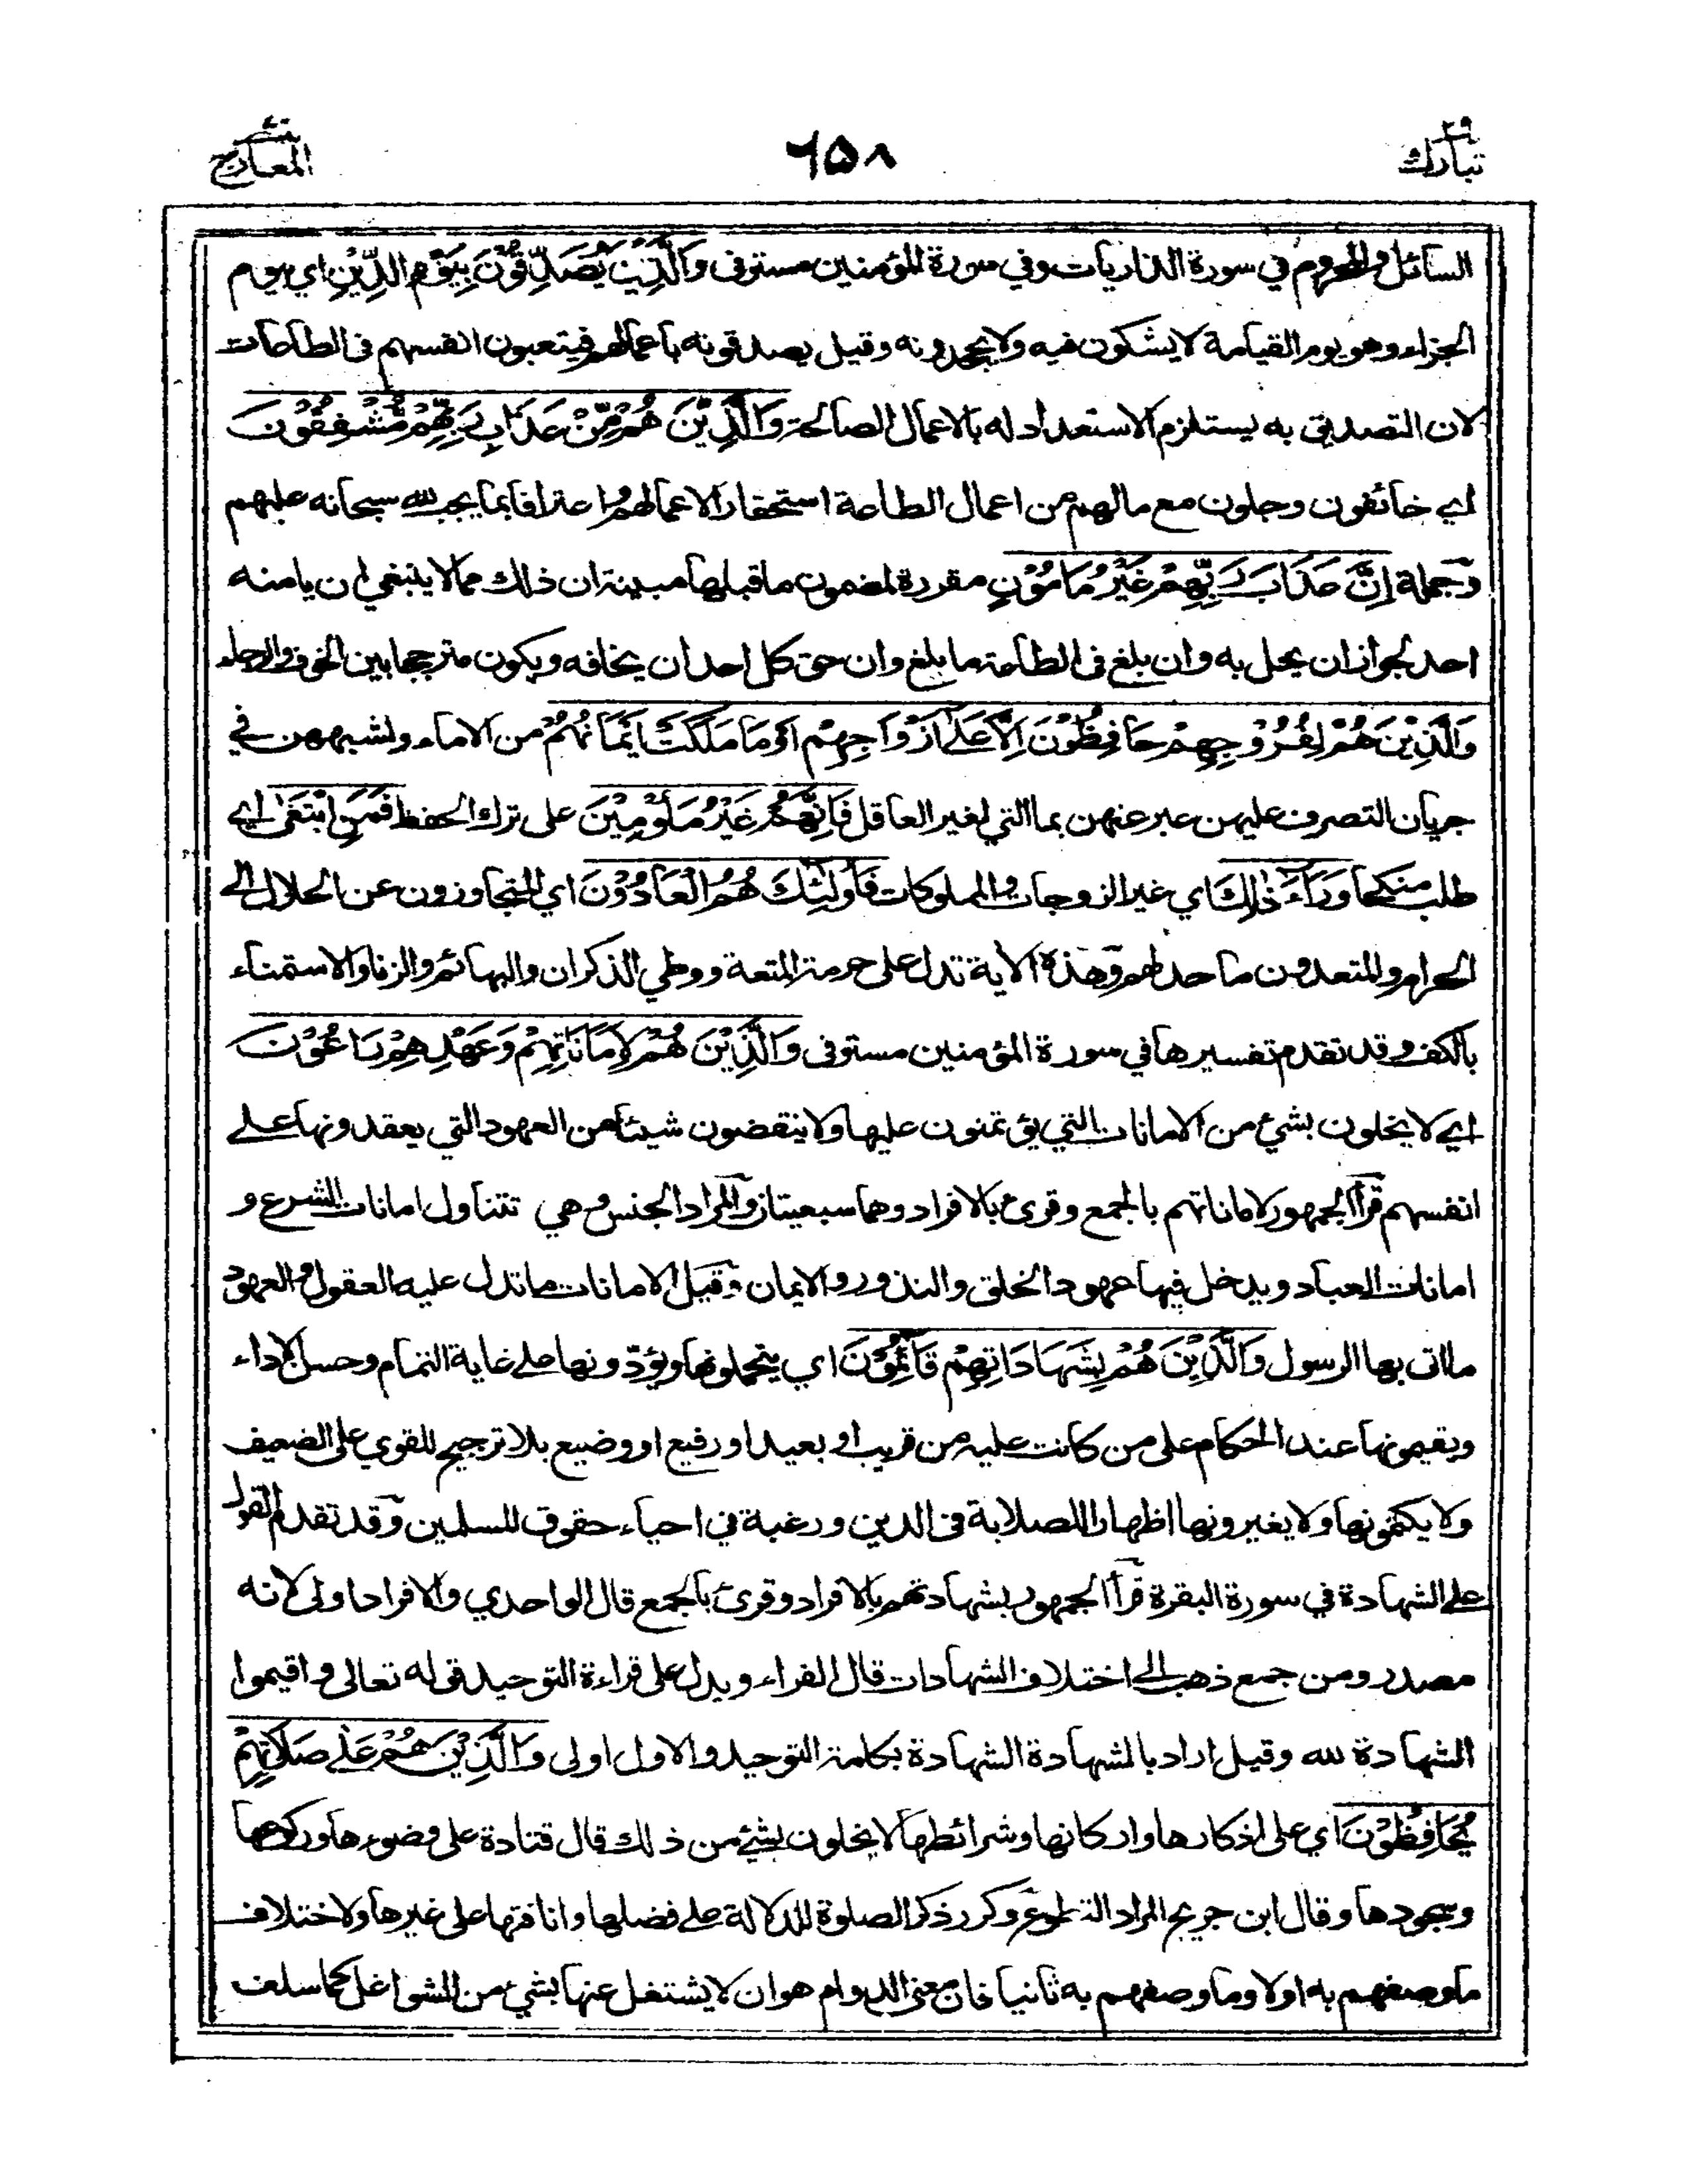 تبارك ٢٩
٦٥٨
المعارج ٧٠
السائل والمحروم في سورة الذاريات وفي سورة المؤمنين مستوفى وَالَّذِيْنَ يُصَدِّقُوْنَ بِيَوْمِ الدِّيْنِ اي يوم
الجزاء وهو يوم القيامة لا يشكون فيه ولا يجحدونه وقيل يصدقونه باعمالهم فيتعبون انفسهم فى الطاعات
لان التصديق به يستلزم الاستعداد له بالاعمال الصالحة وَالَّذِيْنَ هُمْ مِّنْ عَذَابِ رَبِّهِمْ مُّشْفِقُوْنَ
اي خائفون وجلون مع مالهم من اعمال الطاعة استحقارا لاعمالهم واعترافا بما يجب لله سبحانه عليهم
وجملة اِنَّ عَذَابَ رَبِّهِمْ غَيْرُ مَامُوْنٍ مقررة لمضمون ما قبلها مبينة ان ذلك مما لا ينبغي ان يامنه
احد لجواز ان يحل به وان بلغ فى الطاعة ما بلغ وان حق كل احد ان يخافه ويكون مترجحا بين الخوف والرجاء
وَالَّذِيْنَ هُمْ لِفُرُوْجِهِمْ حَافِظُوْنَ اِلَّا عَلٰى اَزْوَاجِهِمْ اَوْ مَا مَلَكَتْ اَيْمَانُهُمْ من الاماء ولشبههن في
جريان التصرف عليهن عبر عنهن بما التي لغير العاقل فَاِنَّهُمْ غَيْرُ مَلُوْمِيْنَ على ترك الحفظ فَمَنِ ابْتَغٰى اي
طلب منكحا وَرَاءَ ذٰلِكَ اي غير الزوجات والمملوكات فَاُولٰئِكَ هُمُ الْعَادُوْنَ اي المتجاوزون عن الحلال الى
الحرام والمتعدون ما حد لهم وهذه الاية تدل على حرمة المتعة ووطي الذكران والبهائم والزنا والاستمناء
بالكف وقد تقدم تفسيرها في سورة المؤمنين مستوفى وَالَّذِيْنَ هُمْ لِاَمَانَاتِهِمْ وَعَهْدِهِمْ رَاعُوْنَ
اي لا يخلون بشيء من الامانات التي يؤتمنون عليها ولا ينقضون شيئا من العهود التي يعقدونها على
انفسهم قرأ الجمهور لاماناتهم بالجمع وقرئ بالافراد وهما سبعيتان والمراد الجنس وهي تتناول امانات الشرع و
امانات العباد ويدخل فيها عهود الخلق والنذور والايمان وقيل الامانات ما تدل عليه العقول والعهود
ما اتى بها الرسول وَالَّذِيْنَ هُمْ بِشَهَادَاتِهِمْ قَائِمُوْنَ اي يتحملونها ويؤدونها على غاية التمام وحسن الاداء
ويقيمونها عند الحكام على من كانت عليه من قريب او بعيد او رفيع او وضيع بلا ترجيح للقوي على الضعيف
ولا يكتمونها ولا يغيرونها اظهارا للصلابة فى الدين ورغبة في احياء حقوق المسلمين وقد تقدم القول
على الشهادة في سورة البقرة قرأ الجمهور بشهادتهم بالافراد وقرئ بالجمع قال الواحدي والافراد اولى لانه
مصدر ومن جمع ذهب الى اختلاف الشهادات قال الفراء ويدل على قراءة التوحيد قوله تعالى واقيموا
الشهادة لله وقيل اراد بالشهادة الشهادة بكلمة التوحيد والاول اولى وَالَّذِيْنَ هُمْ عَلٰى صَلَاتِهِمْ
يُحَافِظُوْنَ اي على اذكارها واركانها وشرائطها لا يخلون بشيء من ذلك قال قتادة على وضوءها وركوعها
وسجودها وقال ابن جريج المراد التطوع وكرر ذكر الصلوة للدلالة على فضلها وانافتها على غيرها ولاختلاف
ما وصفهم به اولا وما وصفهم به ثانيا فان معنى الدوام هو ان لا يشتغل عنها بشيء من الشواغل كما سلف